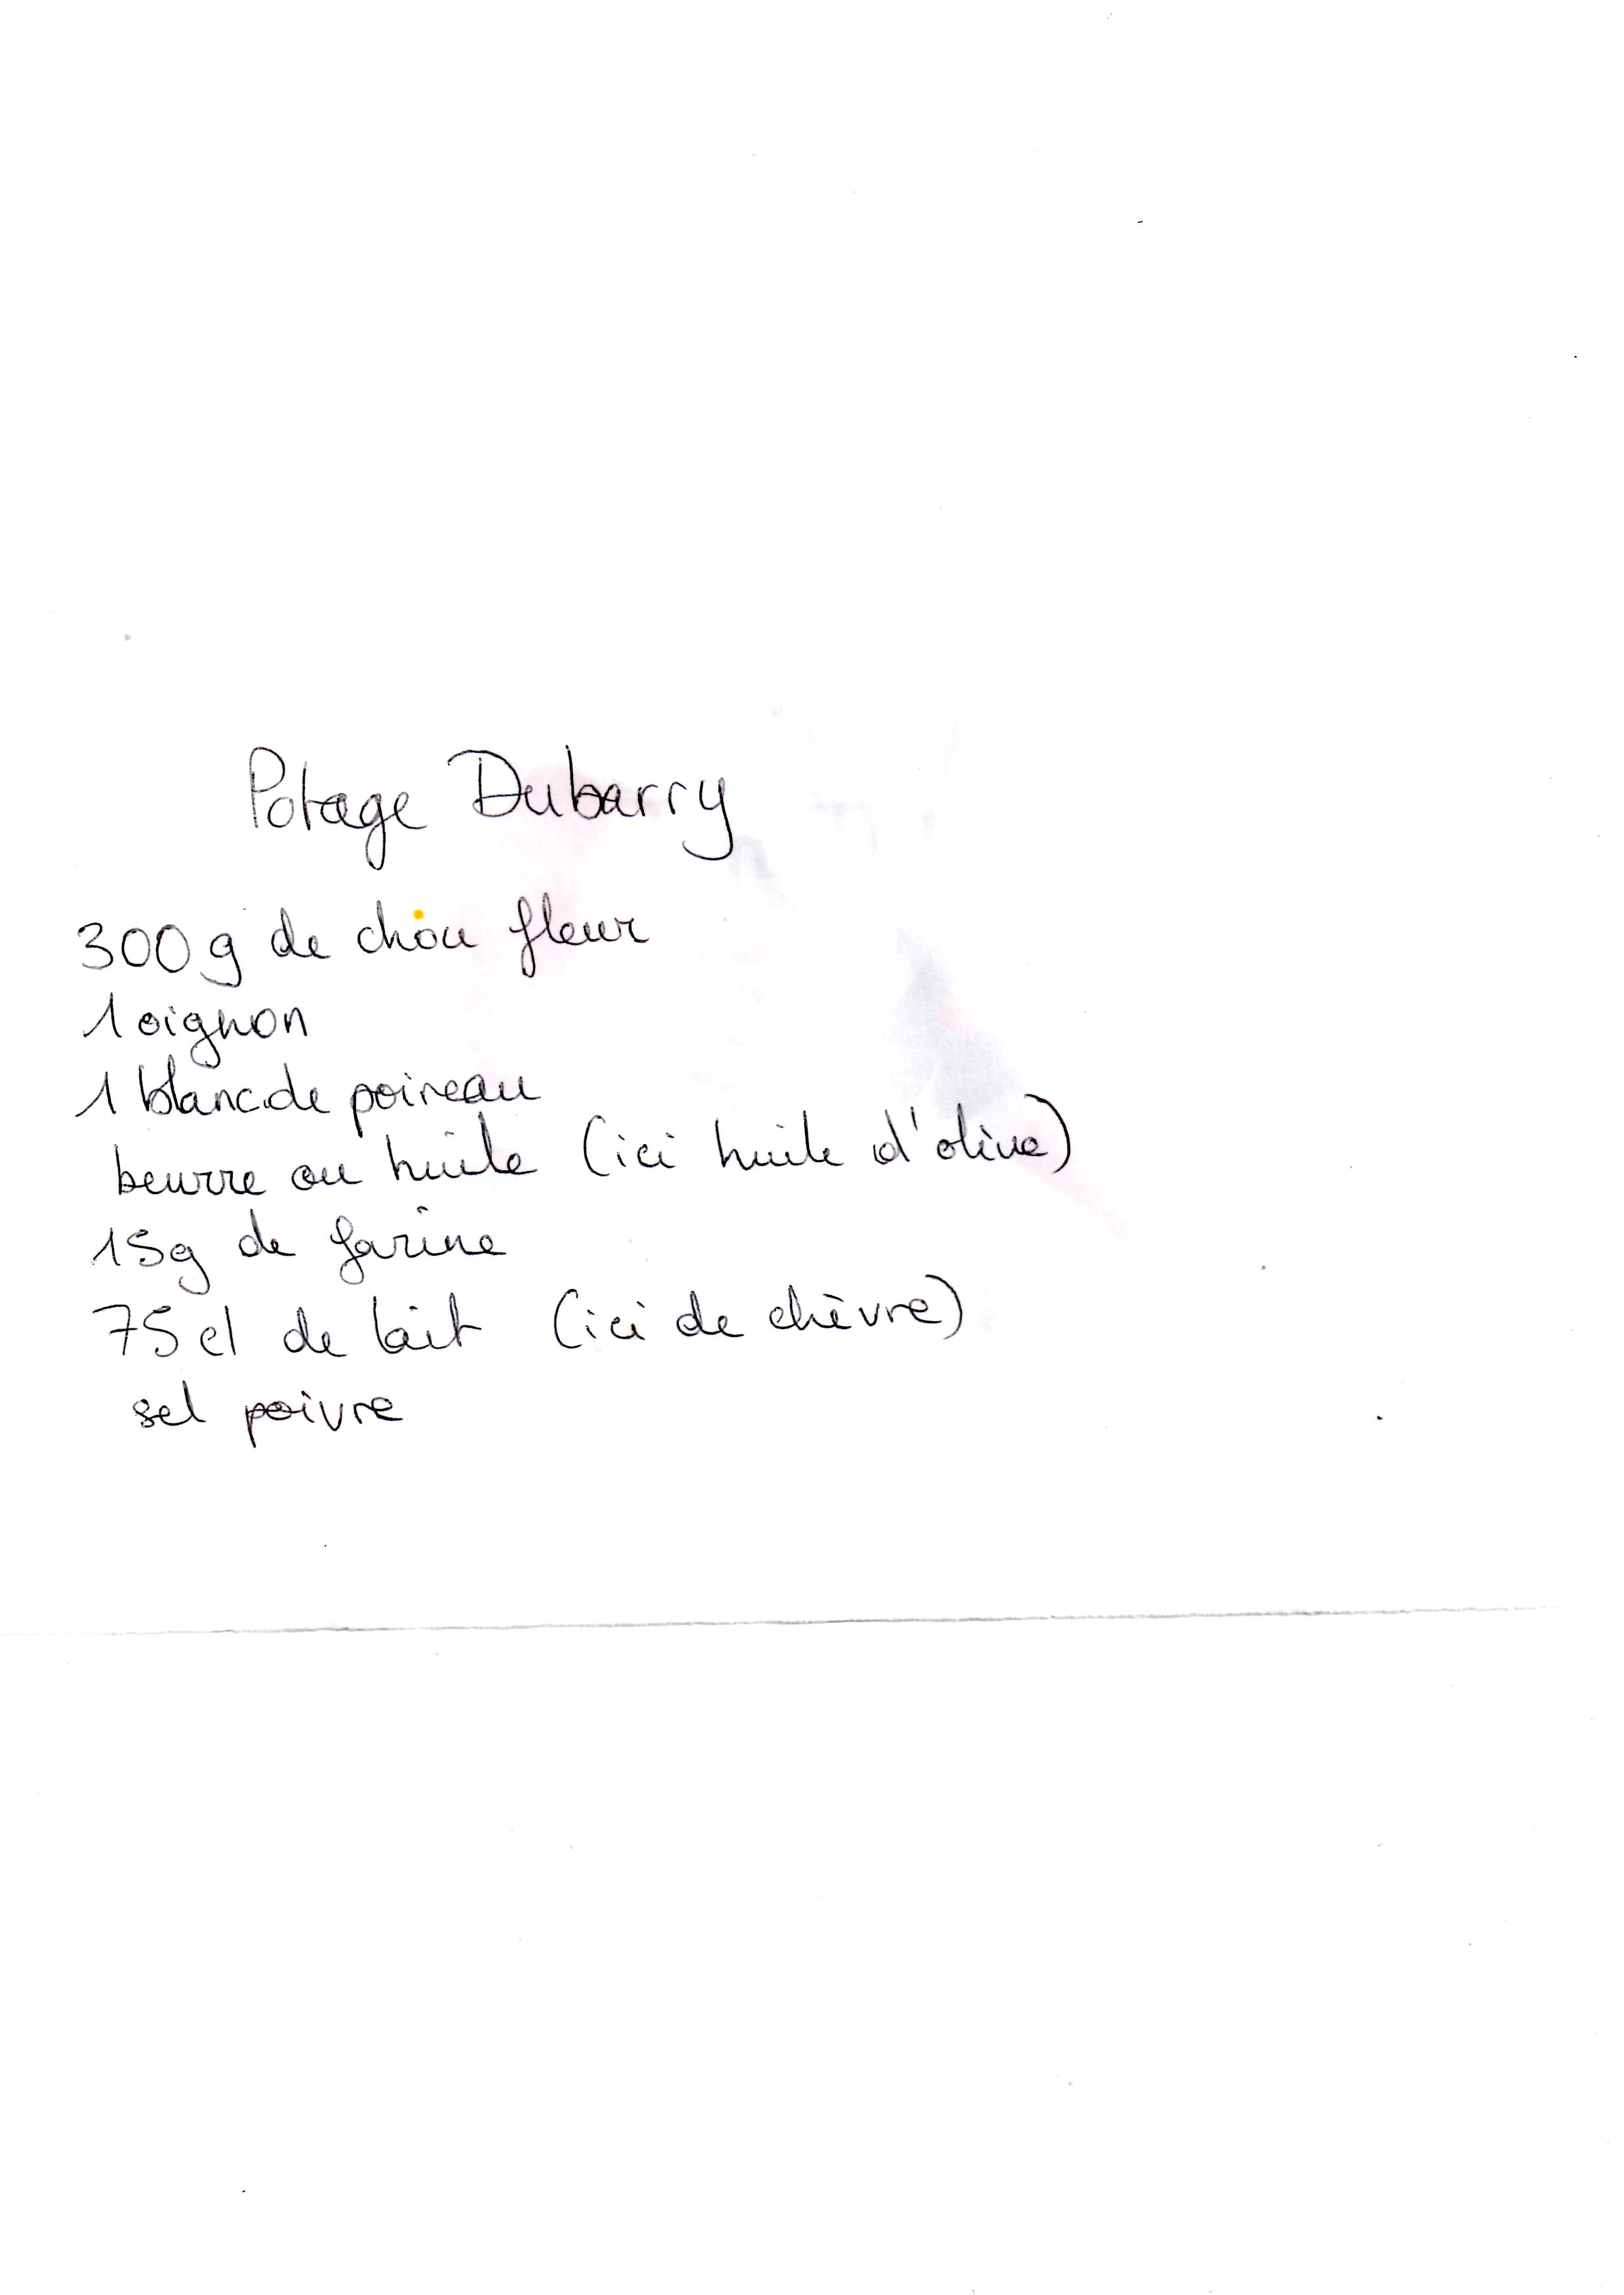 Potage Dubarry
300 g de chou fleur
1 oignon
1 blanc de poireau
beurre ou huile (ici huile d'olive)
15g de farine
75 cl de lait (ici de chèvre)
sel poivre